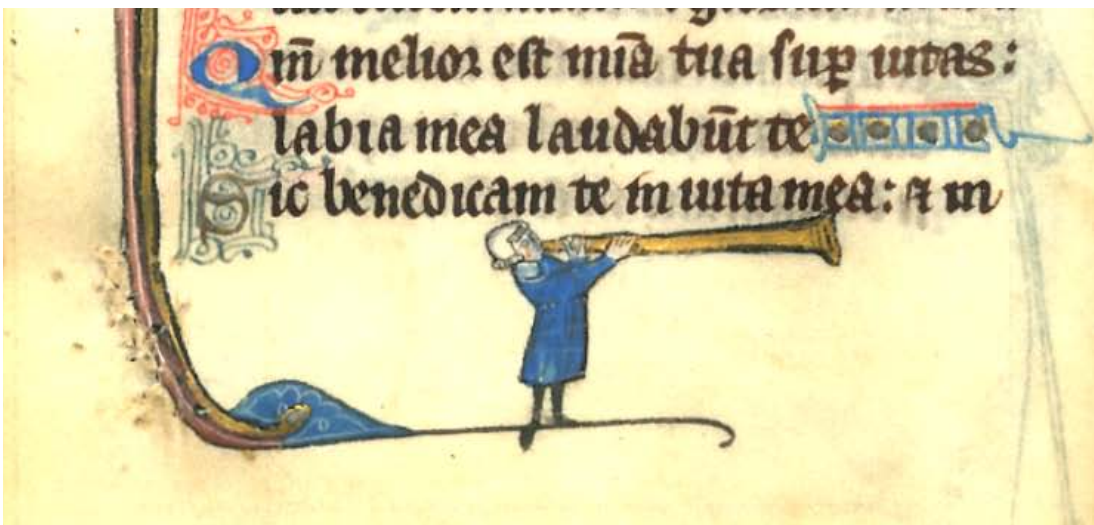 Qm̄ melior est mīa tua sup̲ uitas:
labia mea laudabūt te
Sic benedicam te in uita mea: ⁊ in